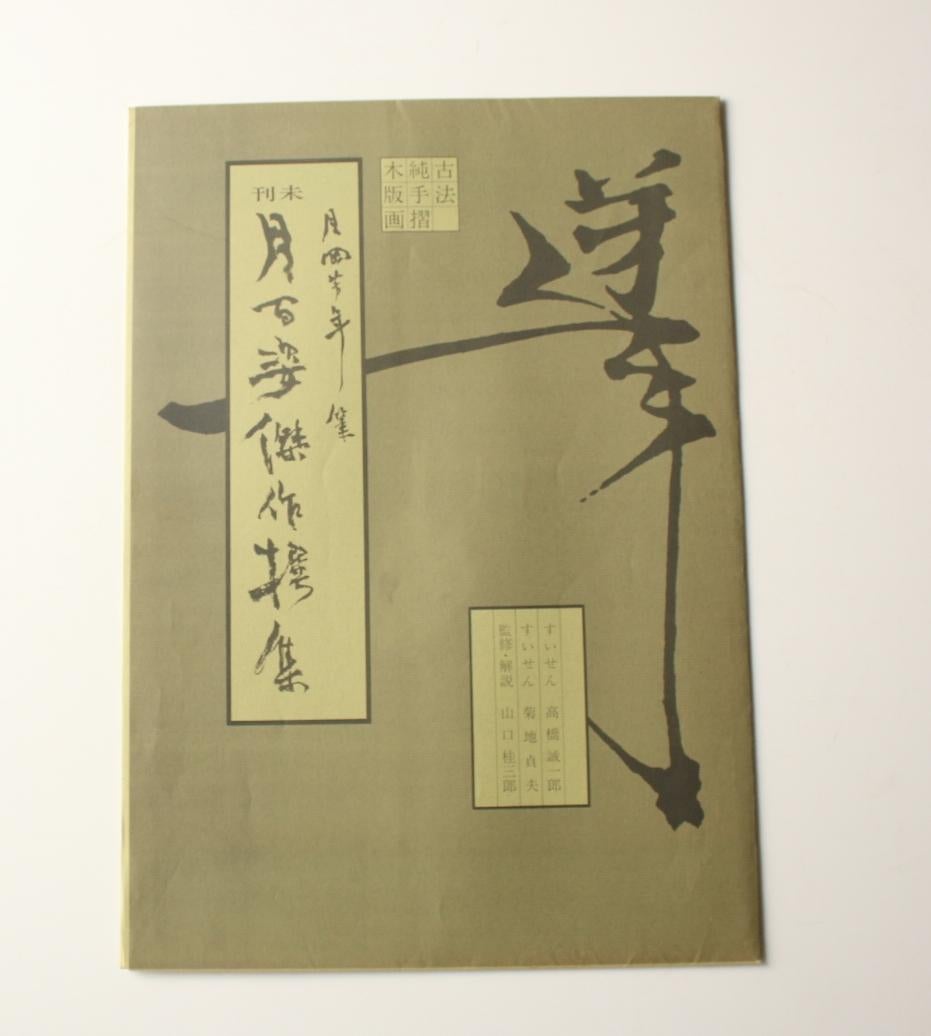 古法
純手摺
木版画
月岡芳年 筆
未刊
月百姿傑作撰集
すいせん 高橋誠一郎
すいせん 菊地貞夫
監修・解説 山口桂三郎